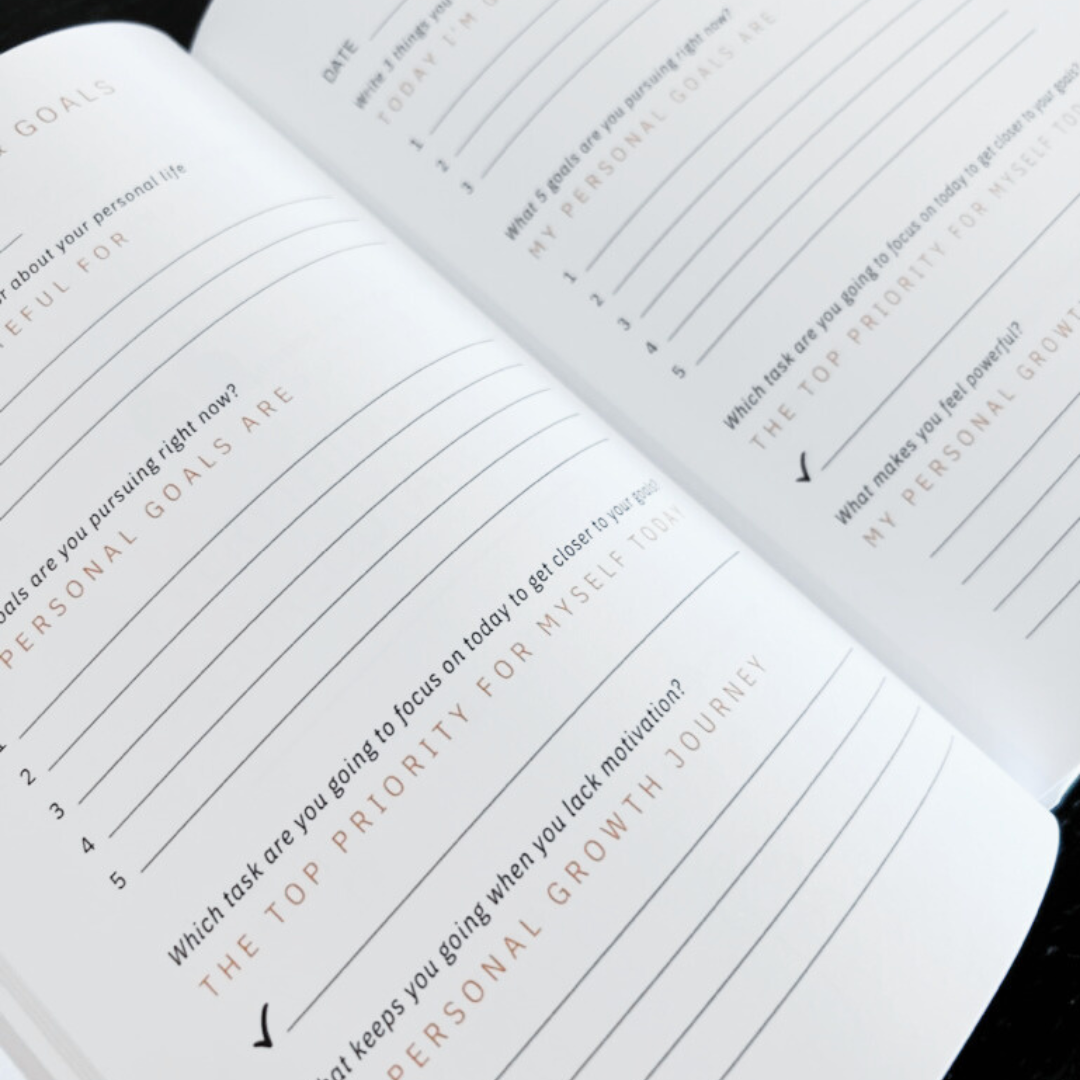 GOALS
about your personal life
FOR
are you pursuing right now?
PERSONAL GOALS ARE
2
3
4
5
Which task are you going to focus on today to get closer to your goals?
THE TOP PRIORITY FOR MYSELF TODAY
keeps you going when you lack motivation?
PERSONAL GROWTH JOURNEY
DATE
Write 3 things you
TODAY I'M
1
2
3
What 5 goals are you pursuing right now?
MY PERSONAL GOALS ARE
1
2
3
4
5
Which task are you going to focus on today to get closer to your goals?
THE TOP PRIORITY FOR MYSELF
What makes you feel powerful?
MY PERSONAL GROWTH